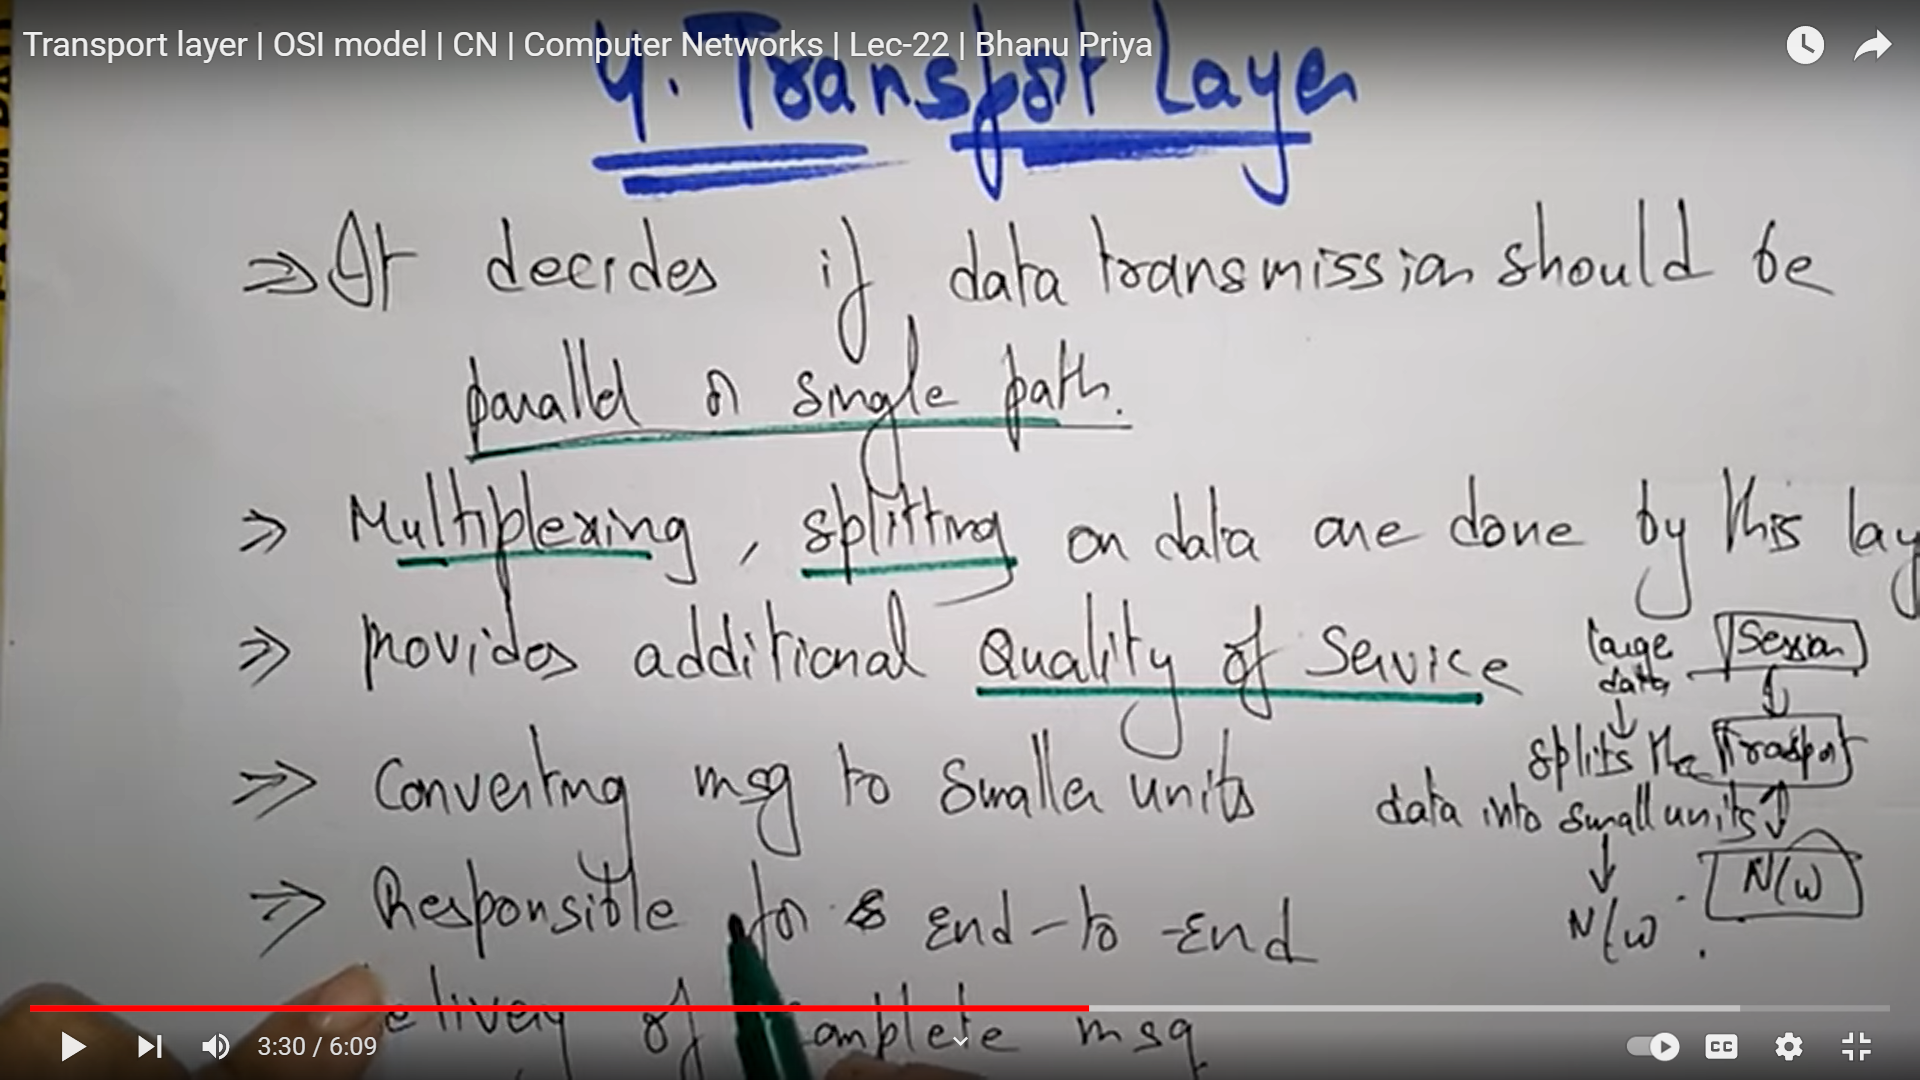 Transport layer | OSI model | CN | Computer Networks | Lec-22 | Bhanu Priya
4. Transport Layer
⇒ It decides if data transmission should be
parallel or single path.
⇒ Multiplexing, splitting on data are done by this lay
⇒ provides additional Quality of Service
⇒ Converting msg to smaller units
⇒ Responsible for End-to-End
elivery of complete msg
large
data
↓
splits the
data into small units
↓
N/w.
Session
Trasport
N/w
3:30 / 6:09
CC